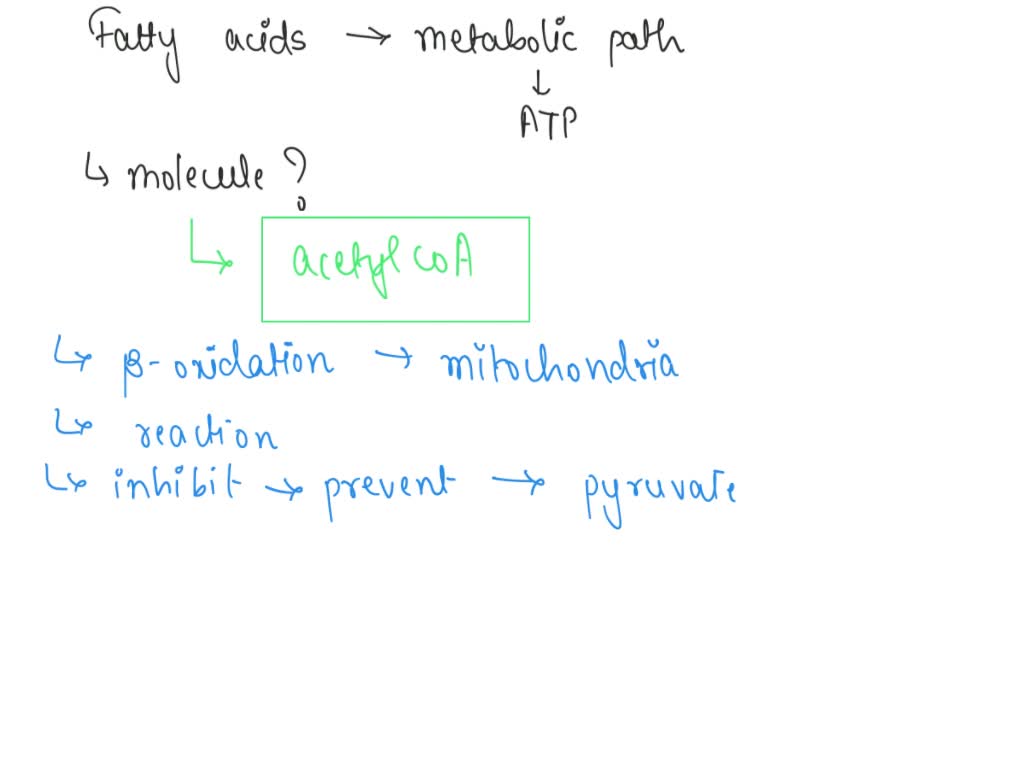 Fatty acids → metabolic path
↓
ATP
↳ molecule ?
↳ acetyl coA
↳ β-oxidation → mitochondria
↳ reaction
↳ inhibit → prevent → pyruvate